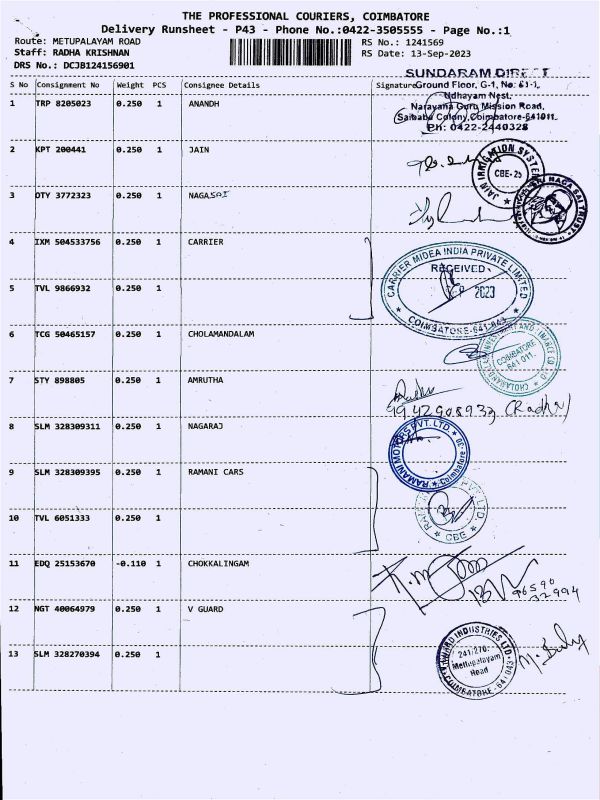 THE PROFESSIONAL COURIERS, COIMBATORE
Delivery Runsheet - P43 - Phone No.:0422-3505555 - Page No.:1
Route: METUPALAYAM ROAD
RS No.: 1241569
Staff: RADHA KRISHNAN
RS Date: 13-Sep-2023
DRS No.: DCJB124156901
SUNDARAM DIRECT
S No Consignment No Weight PCS Consignee Details Signature
Ground Floor, G-1, No: 61-1,
Udhayam Nest,
Narayana Guru Mission Road,
Saibaba Colony, Coimbatore-641011.
Ph: 0422-2440328
1 TRP 8205023 0.250 1 ANANDH
2 KPT 200441 0.250 1 JAIN
JAIN IRRIGATION SYSTEM
CBE-25
3 OTY 3772323 0.250 1 NAGASAI
NAGA SAI TRUST
4 IXM 504533756 0.250 1 CARRIER
CARRIER MIDEA INDIA PRIVATE LIMITED
RECEIVED
2023
COIMBATORE-641 043
5 TVL 9866932 0.250 1
6 TCG 50465157 0.250 1 CHOLAMANDALAM
COIMBATORE
641 011.
7 STY 898805 0.250 1 AMRUTHA
(Radha)
8 SLM 328309311 0.250 1 NAGARAJ
RAMANI MOTORS PVT. LTD.
Coimbatore
9 SLM 328309395 0.250 1 RAMANI CARS
10 TVL 6051333 0.250 1
CBE
11 EDQ 25153670 -0.110 1 CHOKKALINGAM
96590
32994
12 NGT 40064979 0.250 1 V GUARD
13 SLM 328270394 0.250 1
INDUSTRIES LTD
241/270,
Mettupalayam
Road
COIMBATORE - 641 043